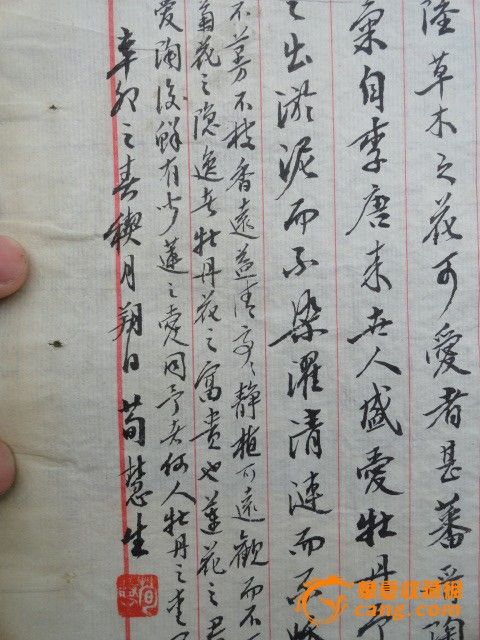 陸草木之花可愛者甚蕃晉陶
菊自李唐来世人盛愛牡丹予
之出淤泥而不染濯清漣而不妖
不蔓不枝香遠益清亭〻静植可遠觀而不
菊花之隐逸者牡丹花之富貴也蓮花之君
愛陶後鮮有聞蓮之愛同予者何人牡丹之愛
辛卯之春禊月朔日荀慧生
華夏收藏網
cang.com